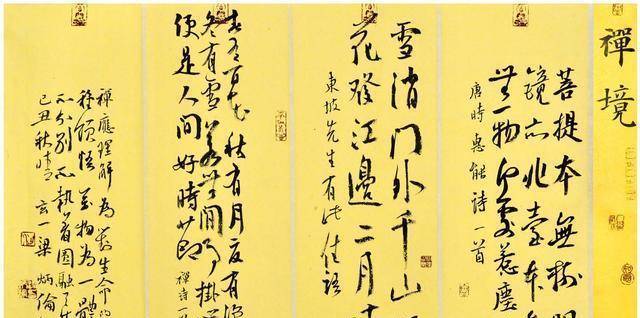 禪境
菩提本無樹
鏡亦非臺本
無一物何處惹塵
唐時惠能詩一首
雪消門外千山
花發江邊二月
東坡先生有此佳語
春有百花秋有月夏有涼
冬有雪若無閒事掛
便是人間好時節 禪詩一
禪應理解為對生命的
種領悟萬物為一體
不分別不執着圓融了
己丑秋 玄一梁炳倫